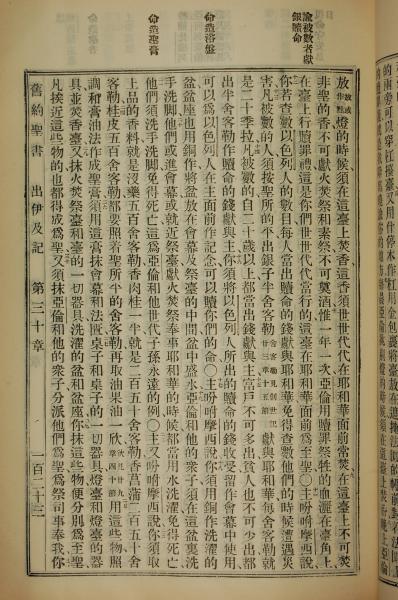 諭被數者獻銀贖命
命造浴盤
命造聖膏
放放或作點燈的時候須在這臺上焚香這香須世世代代在耶和華面前常焚在這臺上不可焚
非聖的香不可獻火焚祭和素祭不可奠酒惟一年一次亞倫用贖罪祭牲的血灑在臺角上
在臺上行贖罪禮這是你們世世代代當行的這臺在耶和華面前爲至聖○主吩咐摩西說
你若查數以色列人的數目每人當出贖命的錢獻與耶和華免得查數他們的時候遭遇災
害凡被數的人須按聖所的平出銀子半舍客勒舍客勒見創世記廿三章十五節獻與耶和華每舍客勒就
是二十季拉凡被數的自二十歲以上都當出錢獻與主富戶不可多出貧人也不可少出都
出半舍客勒作贖命的錢獻與主你須將以色列人所出的贖命的錢收受留作會幕中使用
可以爲以色列人在主面前作記念可以贖你們的命○主吩咐摩西說你須用銅作洗濯的
盆盆座也用銅作將盆放在會幕及祭臺的中間盆中盛水亞倫和他的衆子須在這盆裏洗
手洗脚他們或進會幕或就近祭臺獻火焚祭奉事耶和華的時候都當用水洗濯免得死亡
他們須洗手洗脚免得死亡這爲亞倫和他世代子孫永遠的例○主又吩咐摩西說你須取
上品的香料就是沒藥五百舍客勒香肉桂一半就是二百五十舍客勒香菖蒲二百五十舍
客勒桂皮五百舍客勒都要照着聖所平的舍客勒再取油果油一欣欣見廿九章四十節用這些物照
調和膏油法作成聖膏須用這膏抹會幕和法匱桌子和桌子的一切器具燈臺和燈臺的器
具並焚香臺又抹火焚祭臺和臺的一切器具洗濯的盆和盆座你抹這些物便分別爲至聖
凡挨近這些物的也都得成爲聖又須抹亞倫和他的衆子分派他們爲聖爲祭司事奉我你
舊約聖書 出伊及記 第三十章 一百二十三